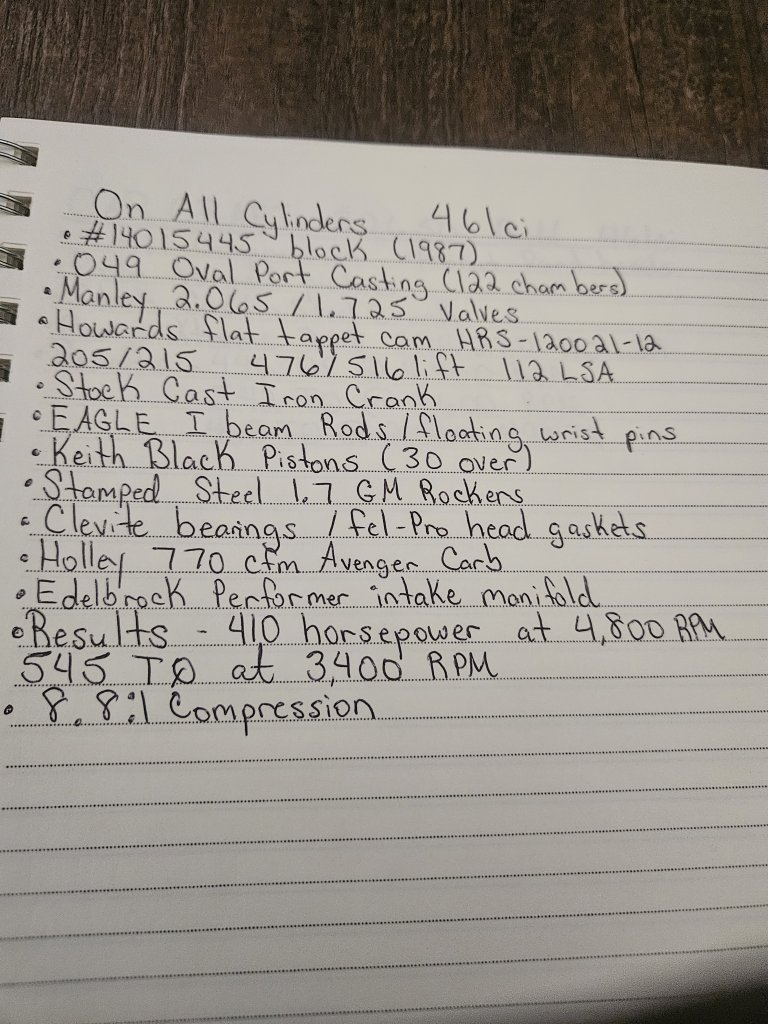 On All Cylinders 461ci
• #14015445 block (1987)
• 049 Oval Port Casting (122 chambers)
• Manley 2.065 / 1.725 Valves
• Howards flat tappet cam HRS-120021-12
205/215 476/516 lift 112 LSA
• Stock Cast Iron Crank
• EAGLE I beam Rods / floating wrist pins
• Keith Black Pistons (30 over)
• Stamped Steel 1.7 GM Rockers
• Clevite bearings / fel-Pro head gaskets
• Holley 770 cfm Avenger Carb
• Edelbrock Performer intake manifold
• Results - 410 horsepower at 4,800 RPM
545 TQ at 3,400 RPM
• 8.8:1 Compression